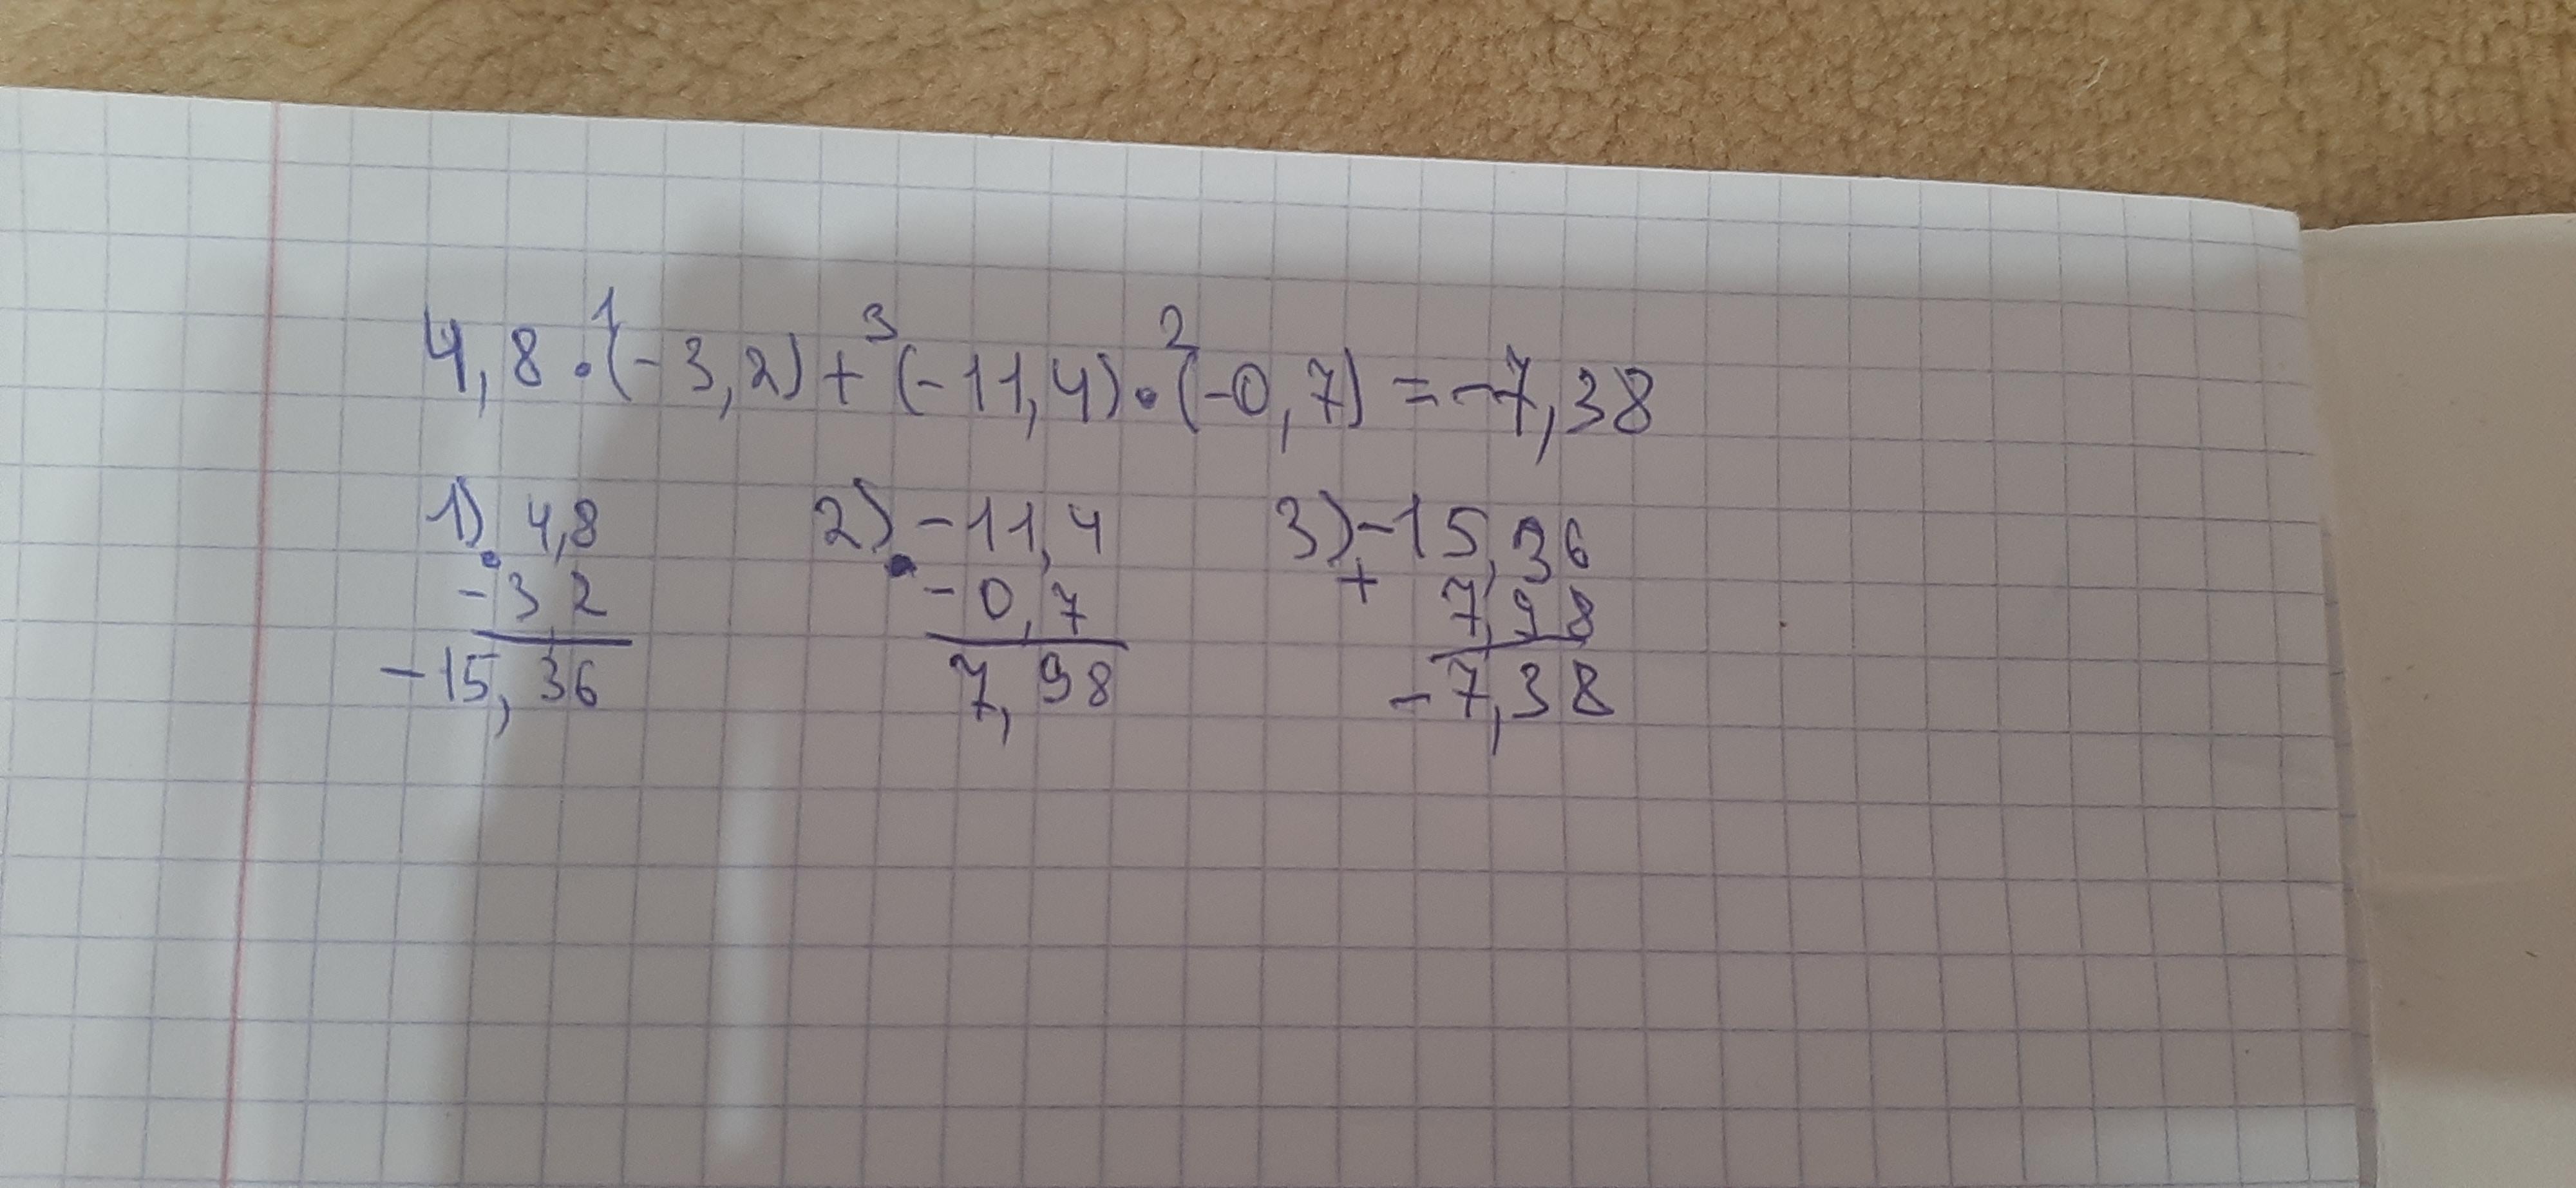 4,8 · (-3,2) + (-11,4) · (-0,7) = -7,38
1 3 2
1) 4,8 2) -11,4 3) -15,36
· -3,2 · -0,7 + 7,98
-15,36 7,98 -7,38